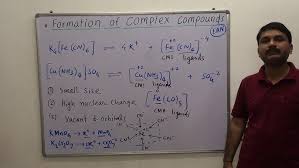 Formation of Complex Compounds
EAN
K₄[Fe(CN)₆] ⇌ 4K⁺ + [Fe(CN)₆]⁻⁴
CMI ligands
[Cu(NH₃)₄]SO₄ ⇌ [Cu(NH₃)₄]⁺² + SO₄⁻²
CMI ligands
① Small Size
② High nuclear Charge
[Fe(CO)₅]
CMA ligands
③ Vacant d-orbitals
KMnO₄ → K⁺ + MnO₄⁻
K₂Cr₂O₇ → 2K⁺ +
CN⁻
CN⁻
CN⁻
CN⁻